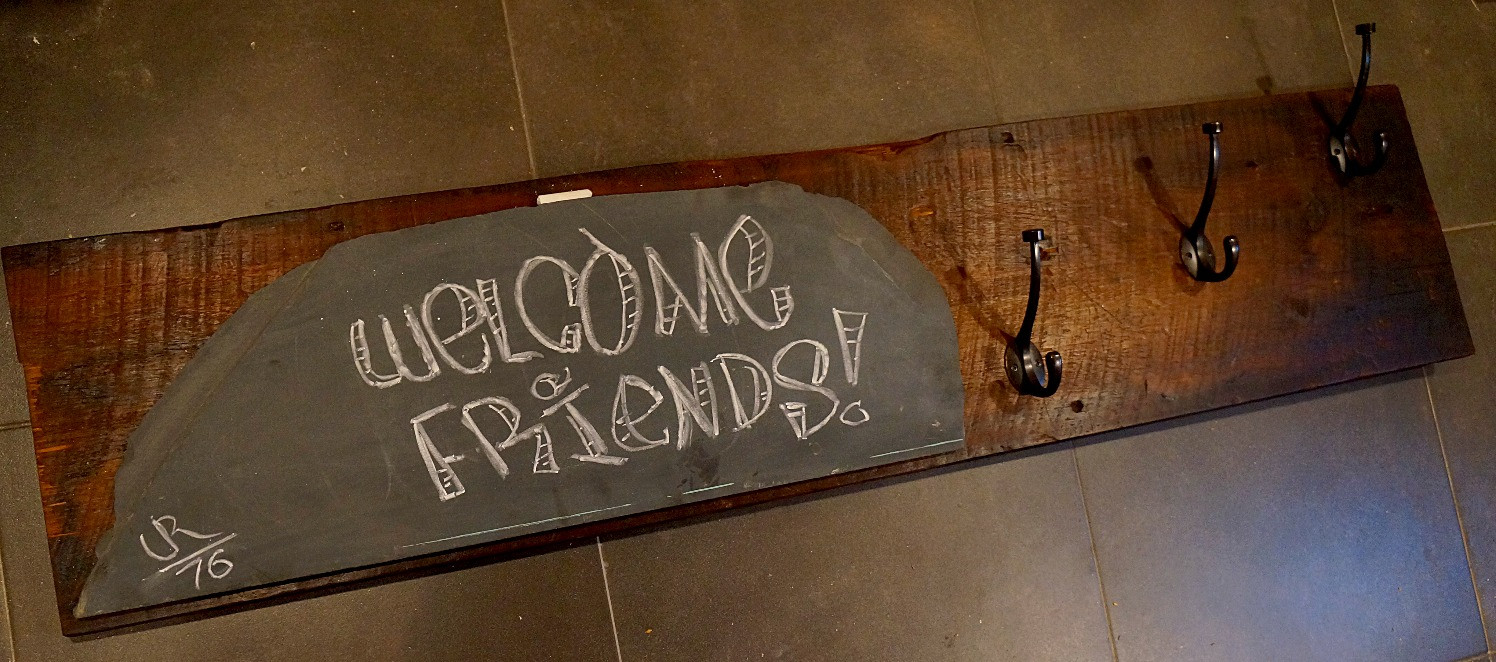 WeLCOMe
FRIeNDS!
JR
/16